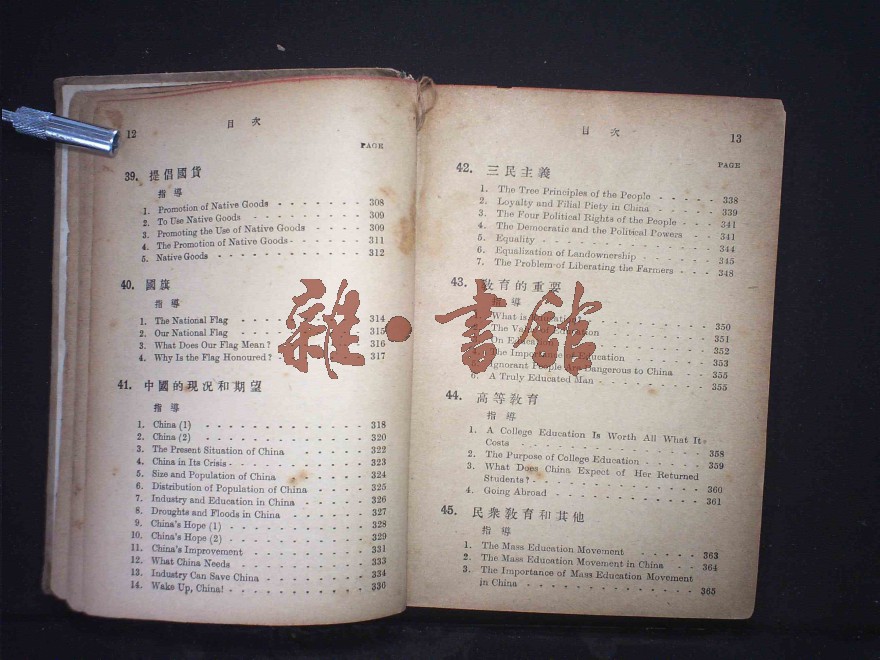 12
目 次
PAGE
39. 提倡國貨
指 導
1. Promotion of Native Goods - - - - - - - - 308
2. To Use Native Goods - - - - - - - - - 309
3. Promoting the Use of Native Goods - - - - - 309
4. The Promotion of Native Goods - - - - - - 311
5. Native Goods - - - - - - - - - - - - 312
40. 國旗
指 導
1. The National Flag - - 314
2. Our National Flag - - 315
3. What Does Our Flag Mean? - 316
4. Why Is the Flag Honoured? - 317
41. 中國的現况和期望
指 導
1. China (1) - - - - - - - - - - - - 318
2. China (2) - - - - - - - - - - - - 320
3. The Present Situation of China - - - - - - 322
4. China in Its Crisis - - - - - - - - - - 323
5. Size and Population of China - - - - - - 324
6. Distribution of Population of China - - - - 325
7. Industry and Education in China - - - - - 326
8. Droughts and Floods in China - - - - - - 327
9. China's Hope (1) - - - - - - - - - - 328
10. China's Hope (2) - - - - - - - - - - 329
11. China's Improvement - - - - - - - - - 331
12. What China Needs - - - - - - - - - - 333
13. Industry Can Save China - - - - - - - - 334
14. Wake Up, China! - - - - - - - - - - 336
目 次
13
PAGE
42. 三民主義
1. The Tree Principles of the People - - - - - 338
2. Loyalty and Filial Piety in China - - - - - 339
3. The Four Political Rights of the People - - - 341
4. The Democratic and the Political Powers - - 341
5. Equality - - - - - - - - - - - - 344
6. Equalization of Landownership - - - - - - 345
7. The Problem of Liberating the Farmers - - - 348
43. 教育的重要
指 導
What is 350
The Education 351
On 352
The Importance of Education 353
Ignorant People Are Dangerous to China - - 355
6. A Truly Educated Man - - - - - - - - 355
44. 高等教育
指 導
1. A College Education Is Worth All What It
Costs - - - - - - - - - - - - 358
2. The Purpose of College Education - - - - - 359
3. What Does China Expect of Her Returned
Students? - - - - - - - - - - - 360
4. Going Abroad - - - - - - - - - - - 361
45. 民衆教育和其他
指 導
1. The Mass Education Movement - - - - - - 363
2. The Mass Education Movement in China - - - 364
3. The Importance of Mass Education Movement
in China - - - - - - - - - - - - 365
雜·書館